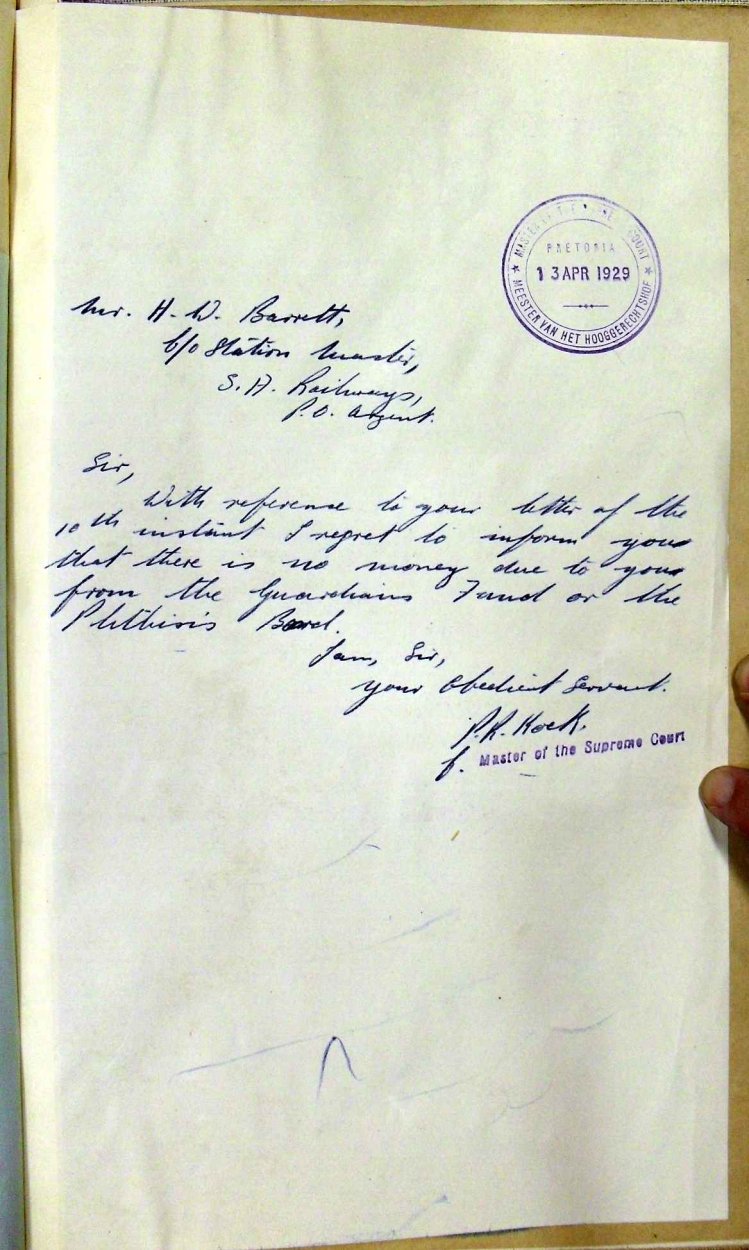 MASTER OF THE SUPREME COURT
PRETORIA
13 APR 1929
MEESTER VAN HET HOOGGERECHTSHOF
Mr. H. W. Barrett,
c/o Station Master,
S. A. Railways,
P.O. Argent.
Sir,
With reference to your letter of the
10th instant I regret to inform you
that there is no money due to you
from the Guardians Fund or the
Phthisis Board.
I am, Sir,
your Obedient Servant.
P.R. Kock.
f. Master of the Supreme Court